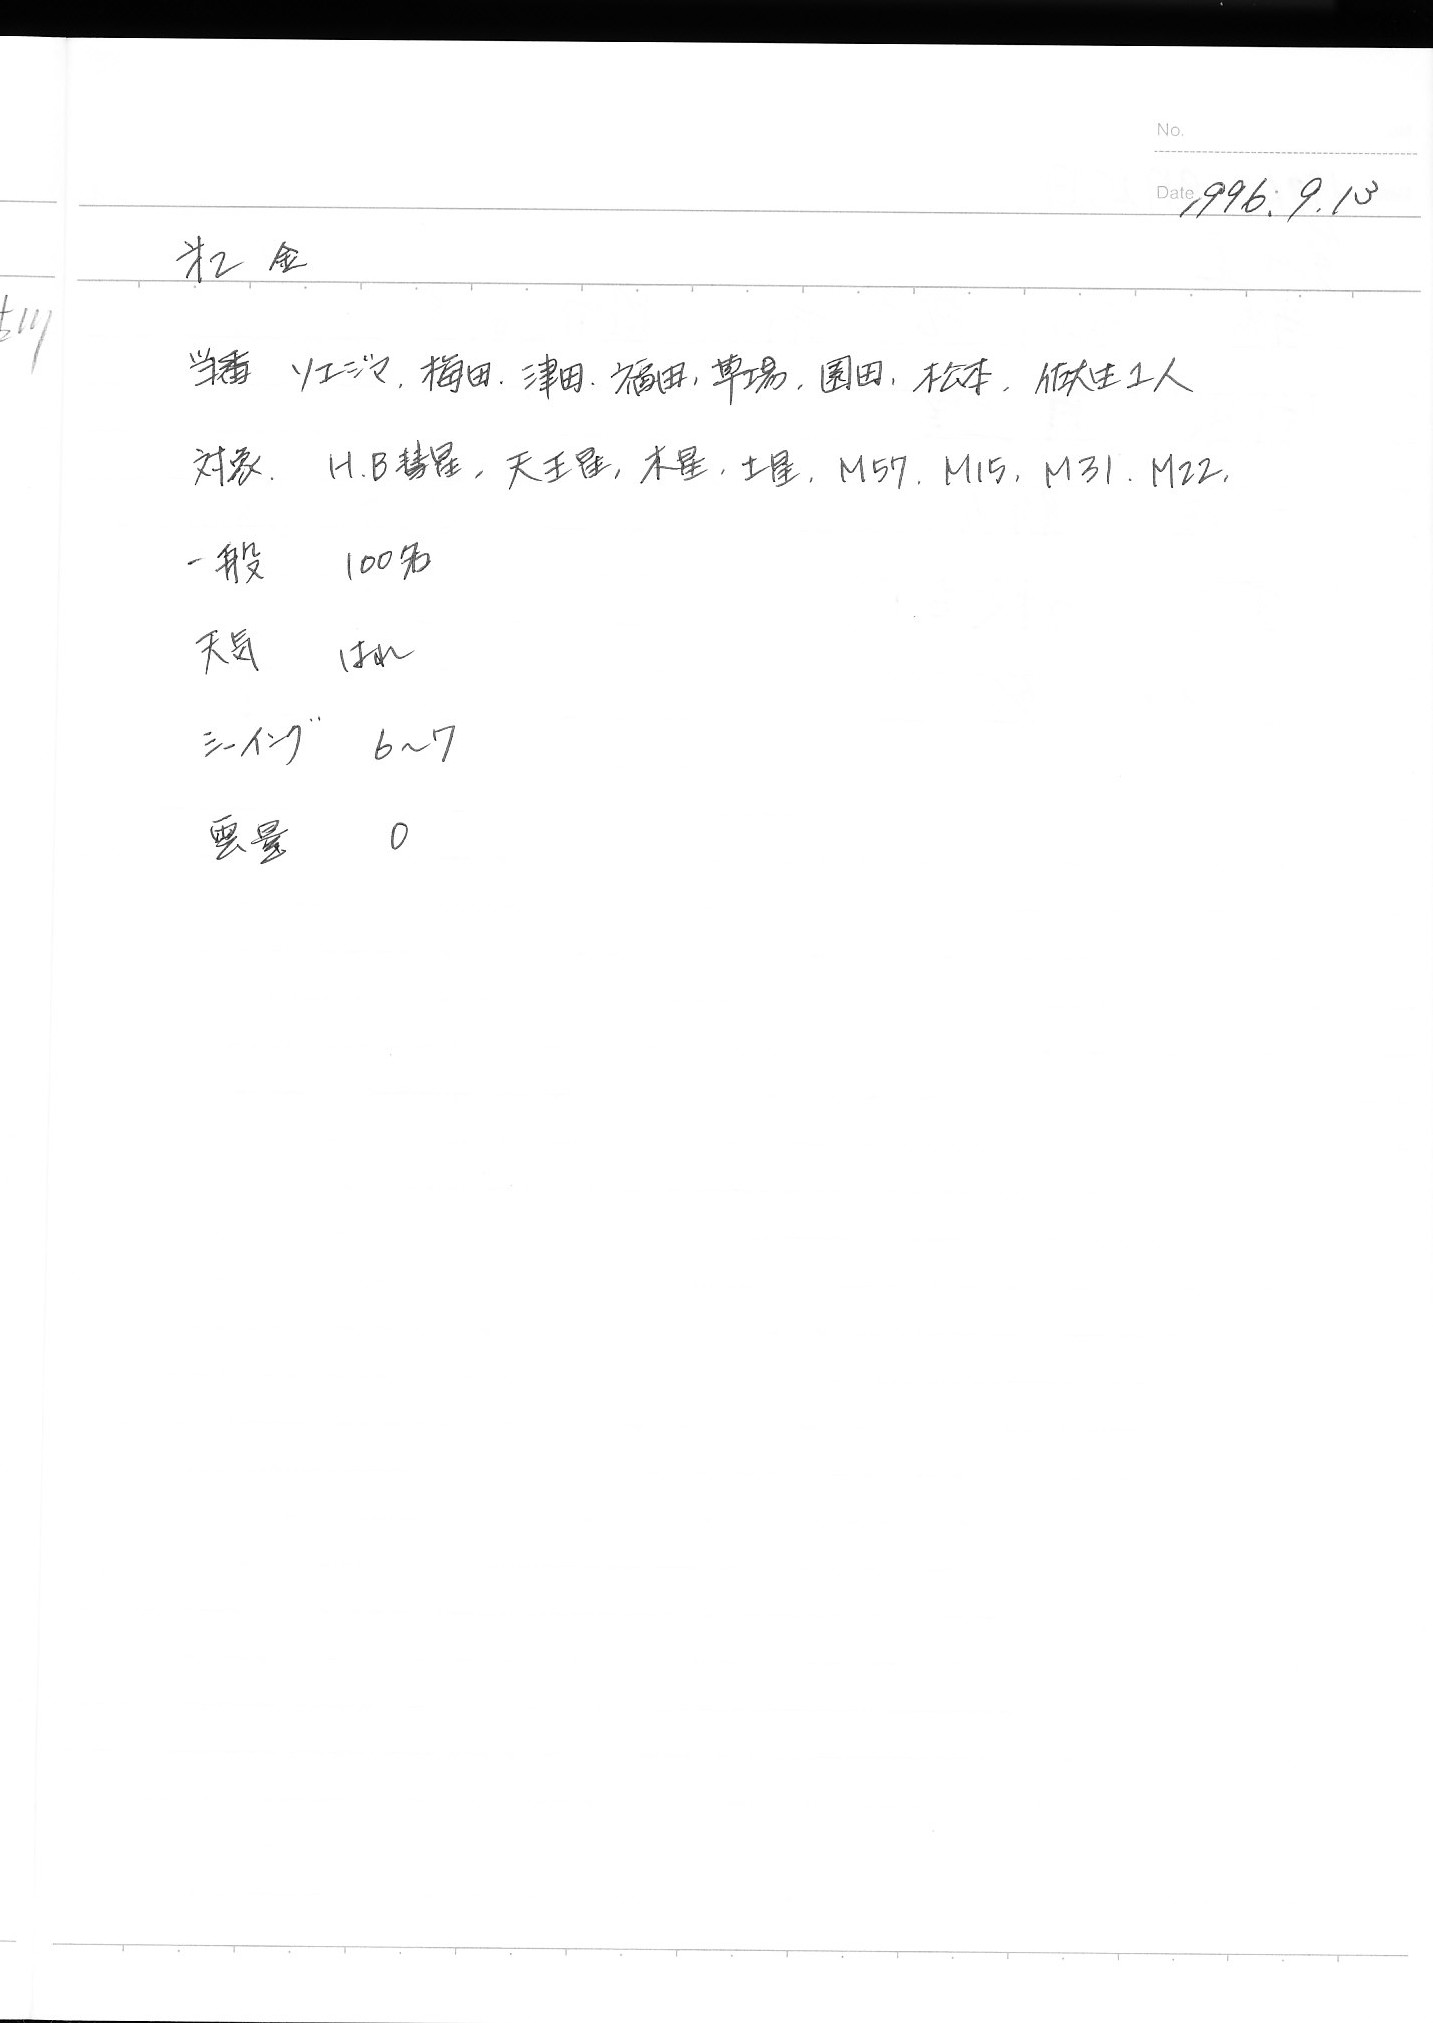 No.
Date 1996. 9. 13
才2 金
当番 ソエジマ, 梅田. 津田. 福田, 草場, 園田, 松本, 佐大生1人
対象. H.B彗星, 天王星, 木星, 土星, M57. M15, M31. M22,
一般 100名
天気 はれ
シーイング 6〜7
雲量 0